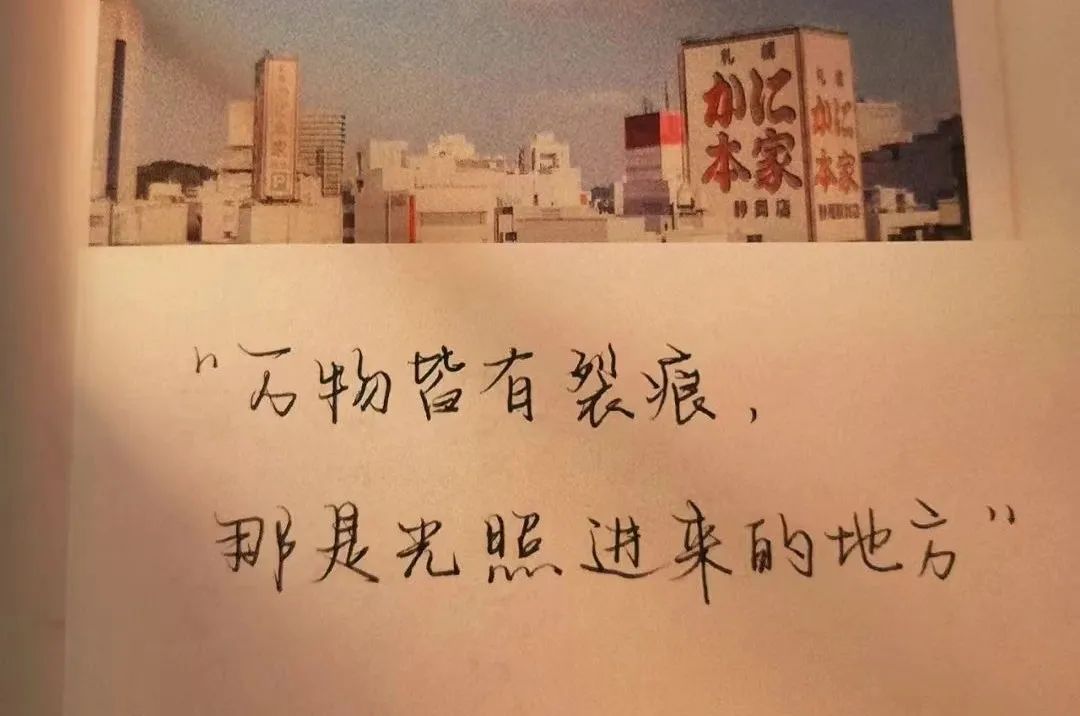 札幌
かに
本家
静岡店
札幌
かに
本家
"万物皆有裂痕，
那是光照进来的地方"